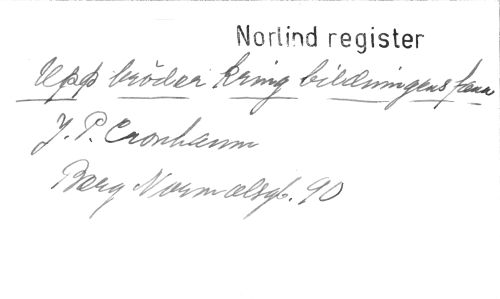 Norlind register
Upp bröder kring bildningens fana
J. P. Cronhamn
Berg Normalsgb. 90